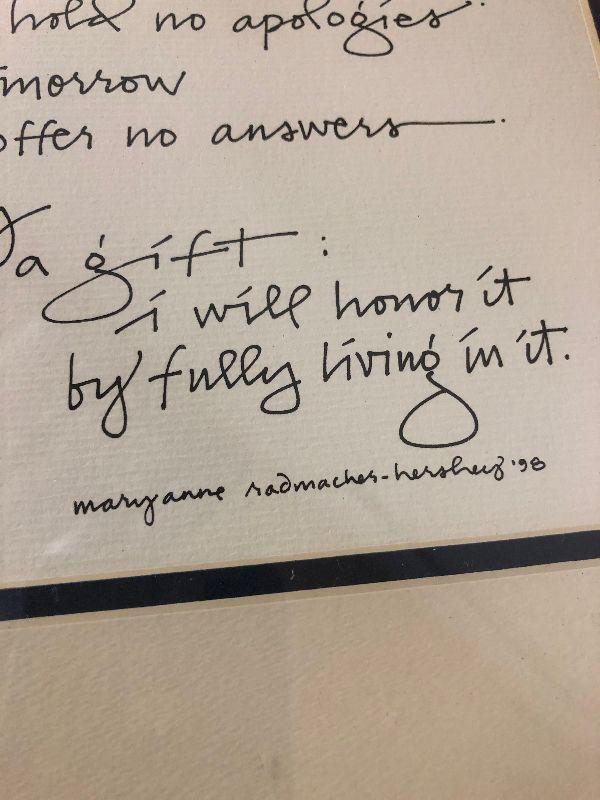 hold no apologies.
omorrow
offer no answers.
a gift:
i will honor it
by fully living in it.
maryanne radmacher-hershey '98